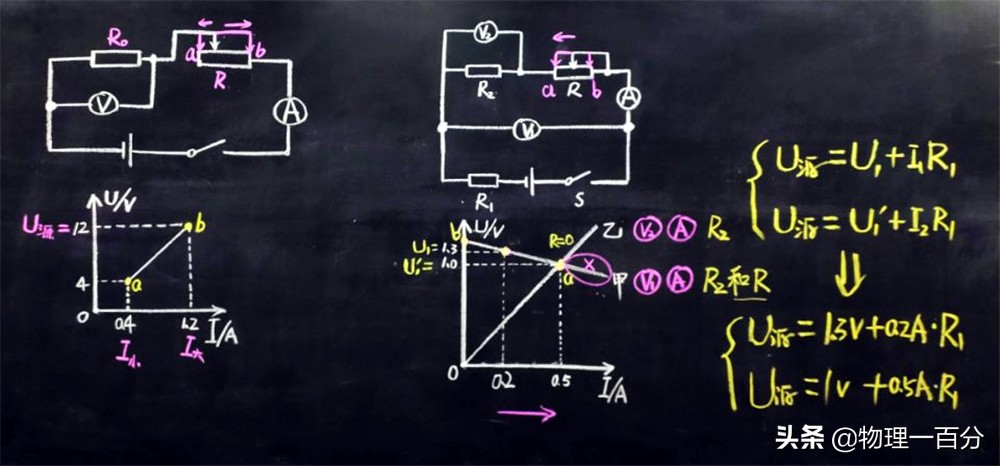 R₀
a
b
R
V
A
V₂
R₂
a
R
b
A
V₁
R₁
S
U/V
U源=12
b
4
a
0
0.4
1.2
I/A
I小
I大
b
U/V
U₁=1.3
U₁'=1.0
R=0
a
X
乙
V₂ A R₂
甲
V₁ A R₂和R
0
0.2
0.5
I/A
U源=U₁+I₁R₁
U源=U₁'+I₂R₁
U源=1.3V+0.2A·R₁
U源=1V+0.5A·R₁
头条 @物理一百分